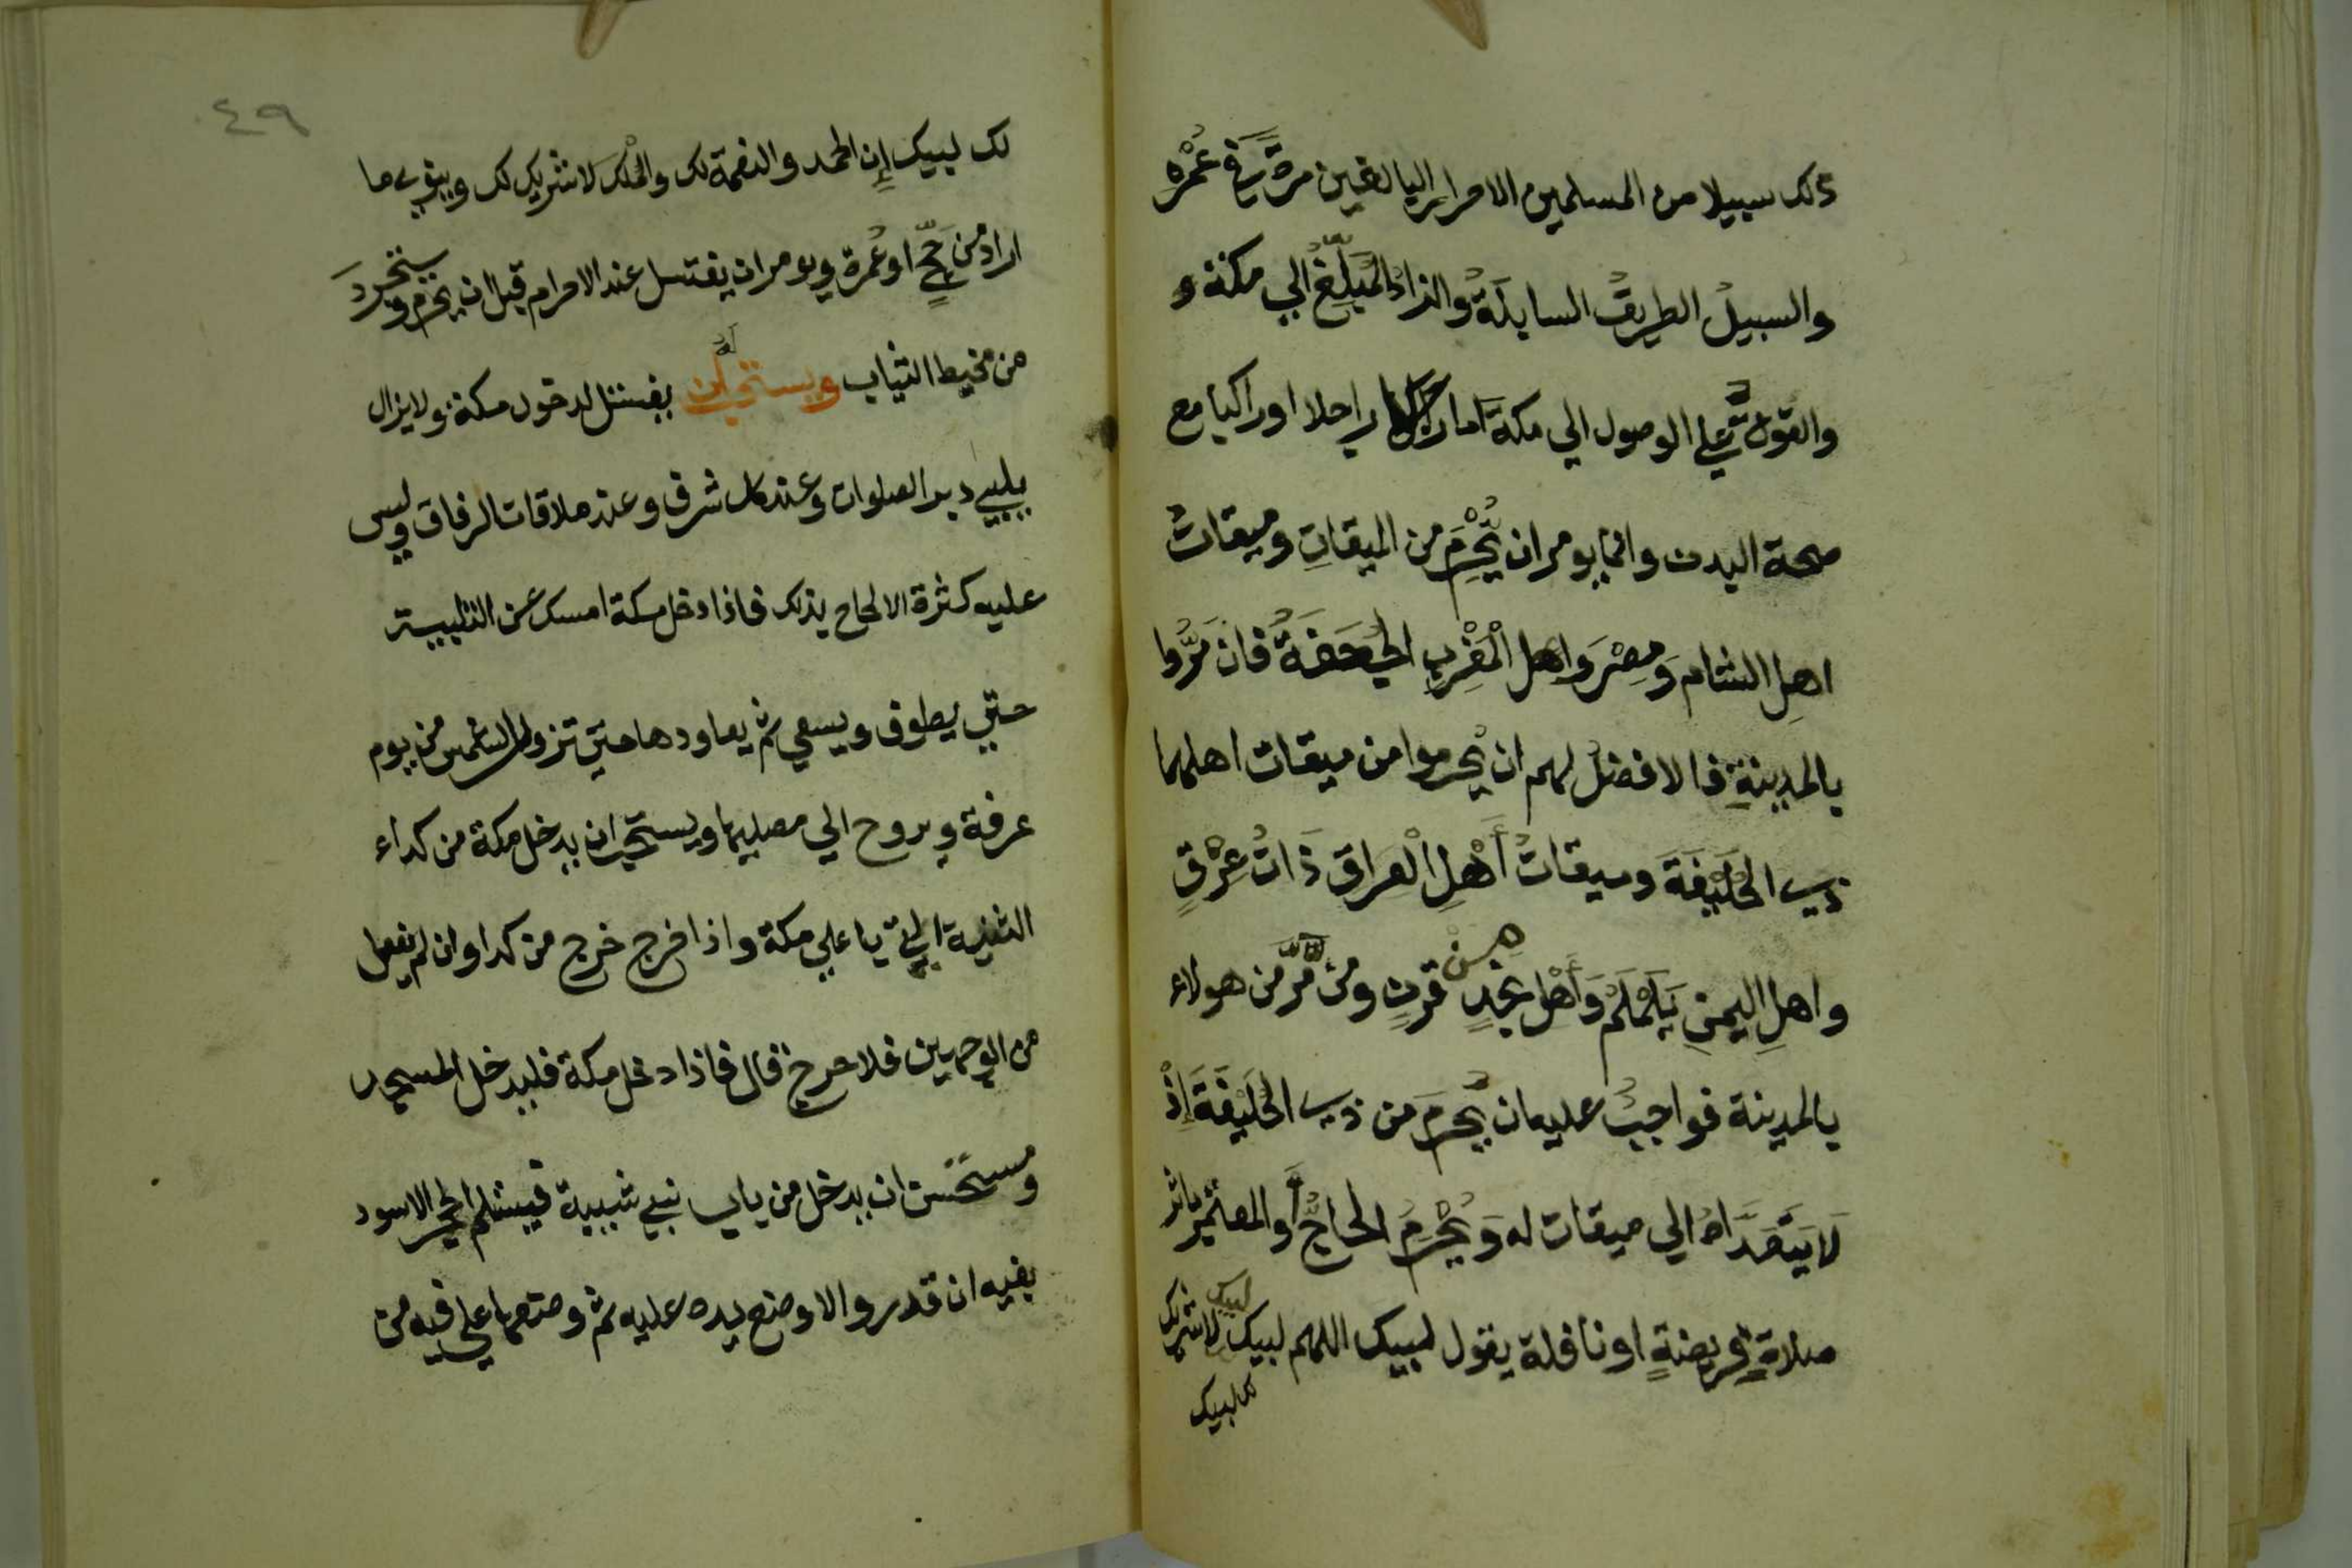 ذلك سبيلا من المسلمين الاحرار البالغين مرّةً في عُمْرِه
والسبيلُ الطريقُ السابلَةُ والزادُ المُبَلِّغُ الي مكة و
والقوةُ علي الوصول الي مكة اما راجلا اوراكبا مع
صحة البدن وانما يومر ان يُّحْرِمَ من الميقاتِ وميقاتُ
اهلِ الشام وَمِصْرَ واهل الْمَغْرِبِ الجُحفَةُ فان مَرُّوا
بالمدينةِ فالافضلُ لهم ان يُحرموا من ميقات اهلها
ذي الحُلَيْفَةَ وميقاتُ أَهْلِ الْعِراقِ ذَاتُ عِرْقٍ
واهلِ اليمنِ يَلَمْلَمْ وَأَهْلِ نجْدٍ من قرنٍ ومن مَّرَّ من هولاء
بالمدينة فواجبٌ عليه ان يُّحْرِمَ من ذي الحُلَيْفَةَ إِذْ
لَا يَتَعَدَّاهُ الي ميقات له وَيُحْرِمُ الحاجُّ أَوالمعتمِرُ باثر
صلاةٍ فريضةٍ اونافلة يقول لبيك اللهم لبيك لبيك لاشريك
لك لبيك
٤٩
لك لبيك إِن الحمد والنعمة لك والمُلْكَ لاشريك لك وينوي ما
اراد من حَجٍّ اوعُمرة ويومر ان يغتسل عند الاحرام قبل ان يُحْرِم ويتجردَ
من مخيط الثياب ويستحب له ان يغتسل لدخول مكة ولايزال
يلبي دبر الصلوات وعند كل شرف وعند ملاقات الرفاق وليس
عليه كثرة الالحاح بذلك فاذا دخل مكة امسك عن التلبية
حتي يطوف ويسعي ثم يعاودها حتي تزول الشمس من يوم
عرفة ويروح الي مصليها ويستحب ان يدخل مكة من كداء
الثنية التي باعلي مكة واذا خرج خرج من كدا وان لم يفعل
من الوجهين فلا حرج قال فاذا دخل مكة فليدخل المسجد
ومستحسن ان يدخل من باب بني شيبة فيستلم الحجر الاسود
بفيه ان قدر والا وضع يده عليه ثم وضعها علي فيه من